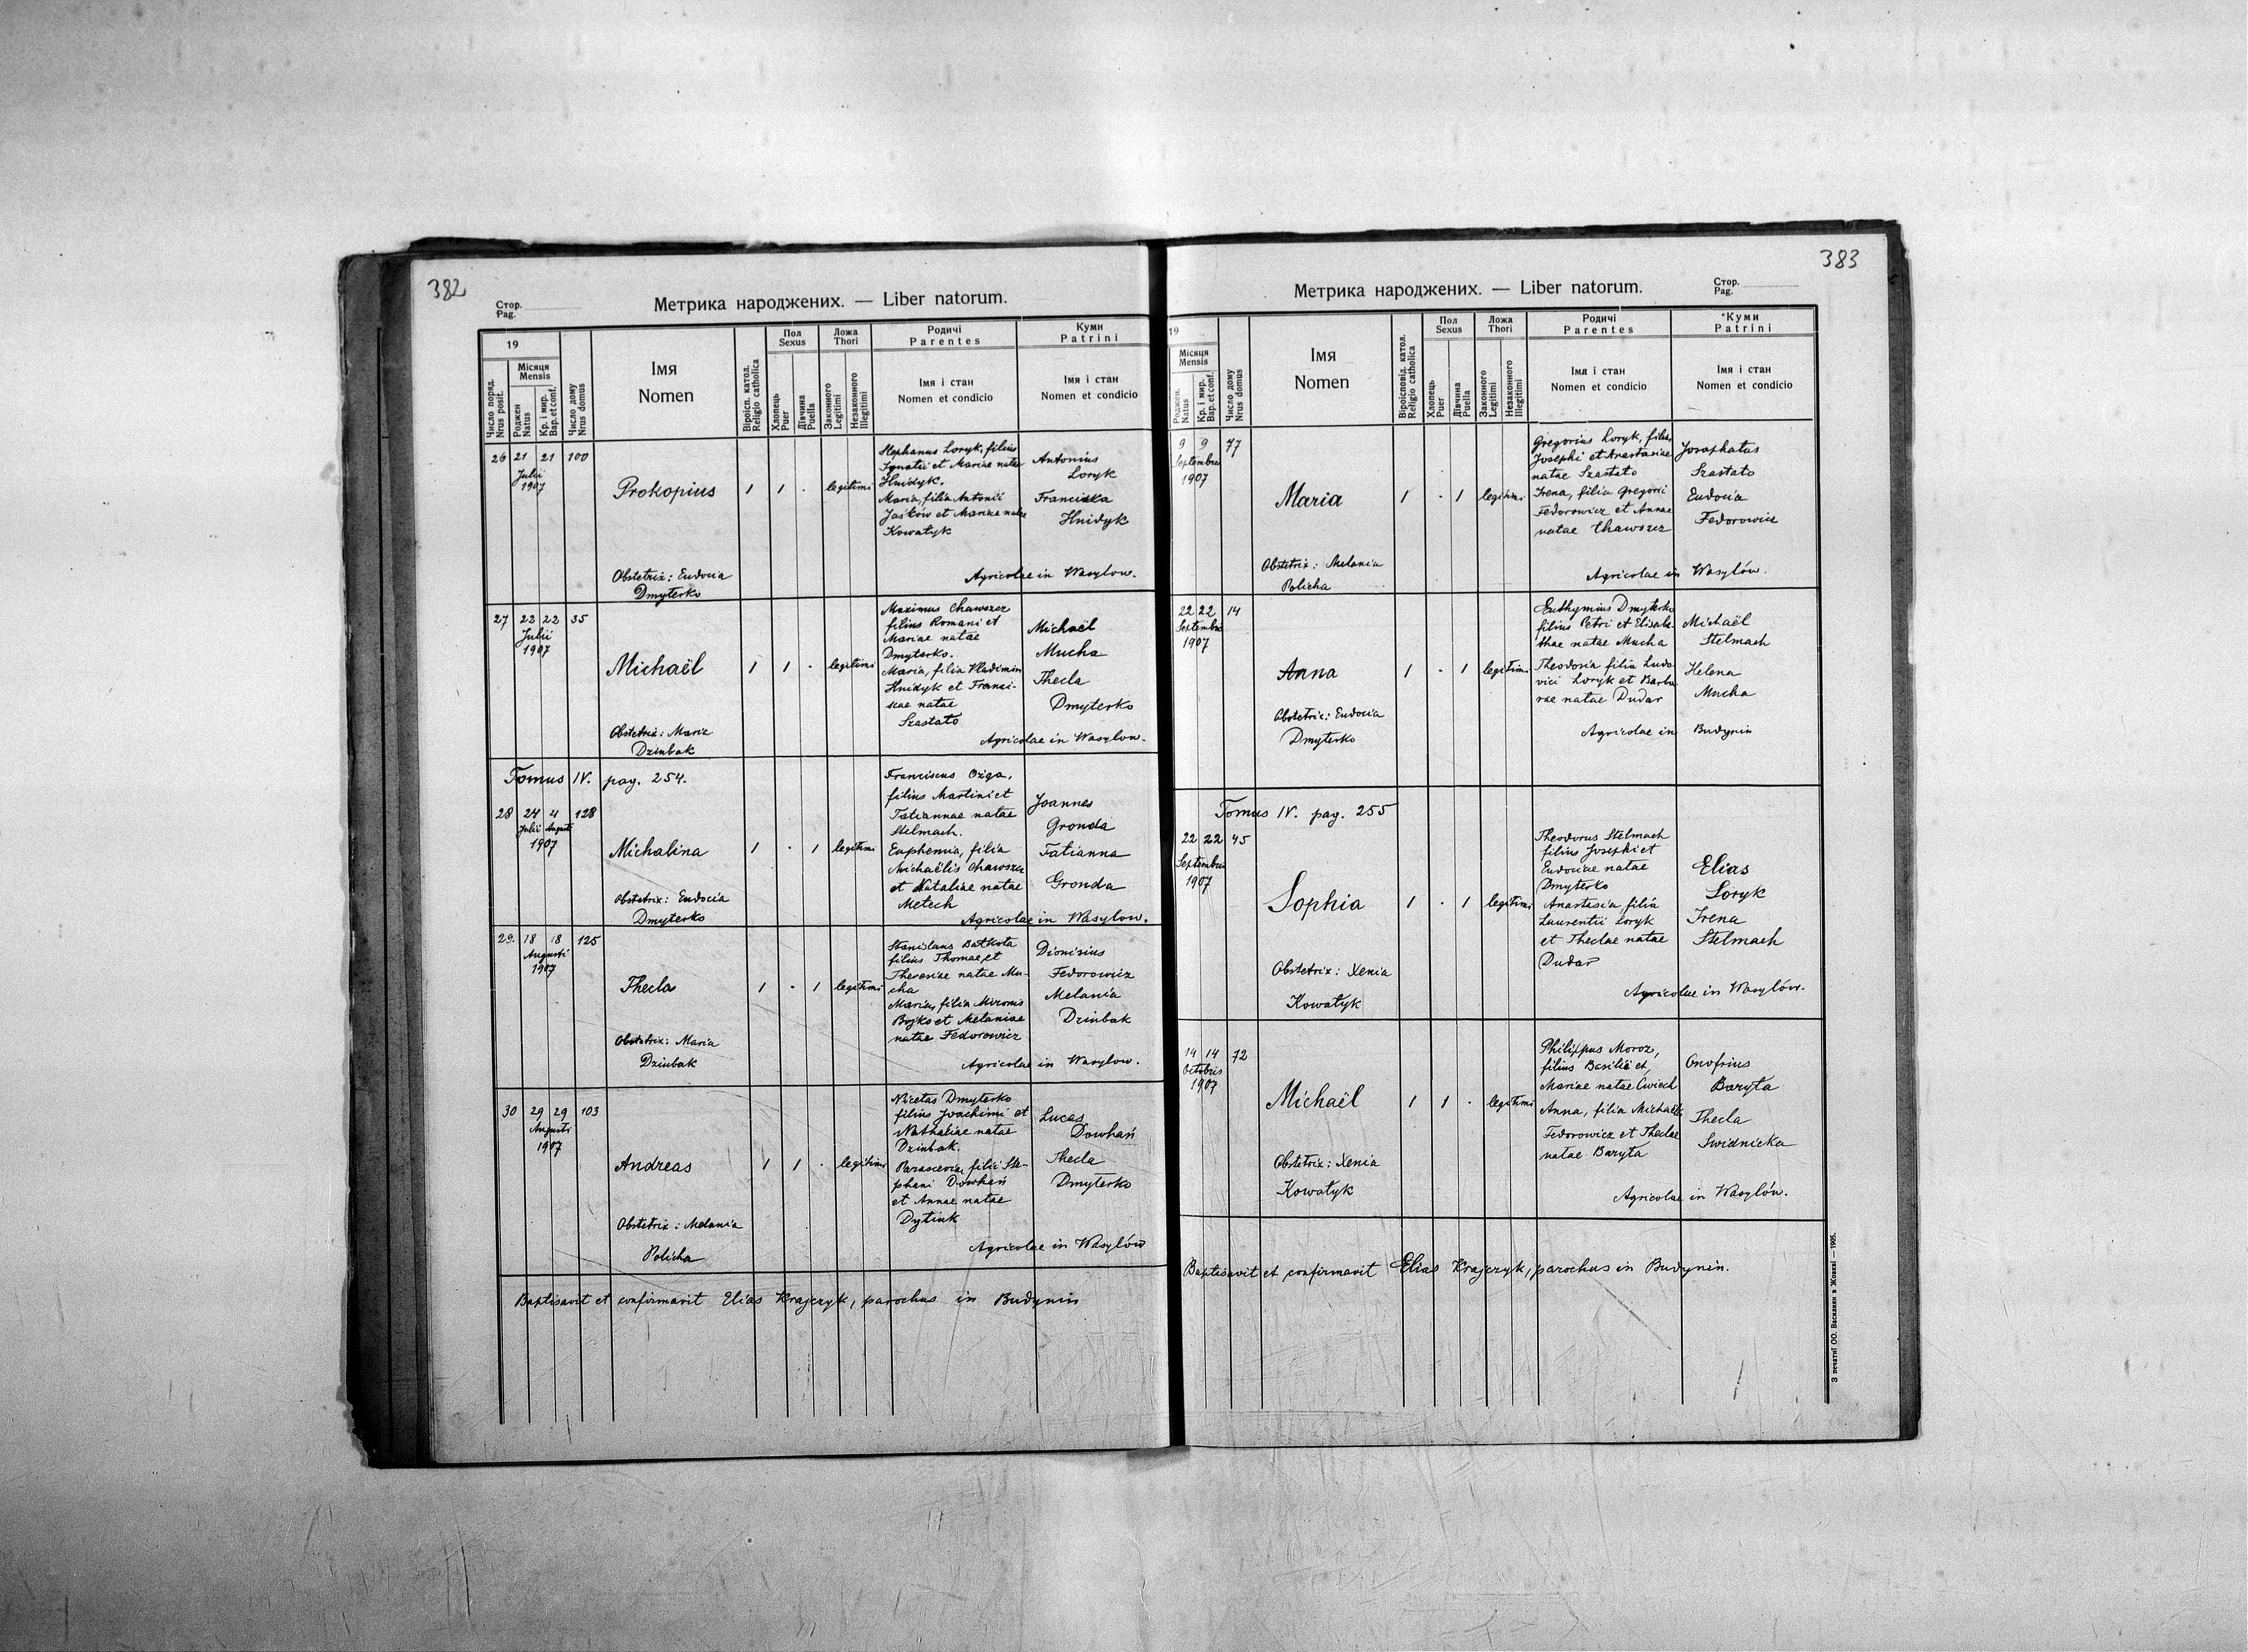 382
Стор.
Pag.
Метрика народжених. — Liber natorum.
19
Число поряд.
Nrus posit.
Місяця
Mensis
Роджен
Natus
Кр. і мир.
Bap. et conf.
Число дому
Nrus domus
Імя
Nomen
Віроісп. катол.
Religio catholica
Пол
Sexus
Хлопець
Puer
Дївчина
Puella
Ложа
Thori
Законного
Legitimi
Незаконного
Illegitimi
Родичі
Parentes
Імя і стан
Nomen et condicio
Куми
Patrini
Імя і стан
Nomen et condicio
26 21 21 100
Julii
1907
Prokopius
1 1 . legitimi
Stephanus Loryk, filius
Ignatii et Mariae natae
Hnidyk.
Maria, filia Antonii
Jaśków et Mariae natae
Kowatyk
Antonius
Loryk
Franciska
Hnidyk
Obstetrix: Eudocia
Dmyterko
Agricolae in Wasylow.
27 22 22 35
Julii
1907
Michaël
1 1 . legitimi
Maximus Chawszcz
filius Romani et
Mariae natae
Dmyterko.
Maria, filia Vladimiri
Hnidyk et Franci-
scae natae
Szastato
Michaël
Mucha
Thecla
Dmyterko
Obstetrix: Maria
Dziubak
Agricolae in Wasylow.
Tomus IV. pag. 254.
28 24 4 128
Julii Augusti
1907
Michalina
1 . 1 legitimi
Franciscus Ożga,
filius Martini et
Tatiannae natae
Stelmach.
Euphemia, filia
Michaëlis Chawszcz
et Nataliae natae
Metech
Joannes
Gronda
Tatianna
Gronda
Obstetrix: Eudocia
Dmyterko
Agricolae in Wasylow.
29. 18 18 125
Augusti
1907
Thecla
1 . 1 legitimi
Stanislaus Batkota
filius Thomae et
Theresiae natae Mu-
cha
Maria, filia Mironis
Bojko et Melaniae
natae Fedorowicz
Dionisius
Fedorowicz
Melania
Dziubak
Obstetrix: Maria
Dziubak
Agricolae in Wasylow.
30 29 29 103
Augusti
1907
Andreas
1 1 . legitimi
Nicetas Dmyterko
filius Joachimi et
Nathaliae natae
Dziubak.
Parascevia, filia Ste-
phani Dowhań
et Annae natae
Dytiuk
Lucas
Dowhań
Thecla
Dmyterko
Obstetrix: Melania
Policha
Agricolae in Wasylów
Baptisavit et confirmavit Elias Krajczyk, parochus in Budynin
383
Стор.
Pag.
Метрика народжених. — Liber natorum.
19
Місяця
Mensis
Роджен.
Natus
Кр. і мир.
Bap. et conf.
Число дому
Nrus domus
Імя
Nomen
Віроісповід. катол.
Religio catholica
Пол
Sexus
Хлопець
Puer
Дївчина
Puella
Ложа
Thori
Законного
Legitimi
Незаконного
Illegitimi
Родичі
Parentes
Імя і стан
Nomen et condicio
Куми
Patrini
Імя і стан
Nomen et condicio
9 9 77
Septembris
1907
Maria
1 . 1 legitimi
Gregorius Loryk, filius
Josephi et Anastasiae
natae Szastato
Irena, filia Gregorii
Fedorowicz et Annae
natae Chawszcz
Josaphatus
Szastato
Eudocia
Fedorowicz
Obstetrix: Melania
Policha
Agricolae in Wasylów.
22 22 14
Septembris
1907
Anna
1 . 1 legitimi
Euthymius Dmyterko
filius Petri et Elisabe-
thae natae Mucha
Theodosia filia Ludo-
vici Loryk et Barba-
rae natae Dudar
Michaël
Stelmach
Helena
Mucha
Obstetrix: Eudocia
Dmyterko
Agricolae in Budynin
Tomus IV. pag. 255
22 22 45
Septembris
1907
Sophia
1 . 1 legitimi
Theodorus Stelmach
filius Josephi et
Eudociae natae
Dmyterko
Anastasia, filia
Laurentii Loryk
et Theclae natae
Dudar
Elias
Loryk
Irena
Stelmach
Obstetrix: Xenia
Kowatyk
Agricolae in Wasylów.
14 14 72
Octobris
1907
Michaël
1 1 . legitimi
Philippus Moroz,
filius Basilii et
Mariae natae Cwiech
Anna, filia Michaëlis
Fedorowicz et Theclae
natae Baryta
Onofrius
Baryta
Thecla
Swidnicka
Obstetrix: Xenia
Kowatyk
Agricolae in Wasylów.
Baptisavit et confirmavit Elias Krajczyk, parochus in Budynin.
З печатні ОО. Василиян в Жовкві — 1905.